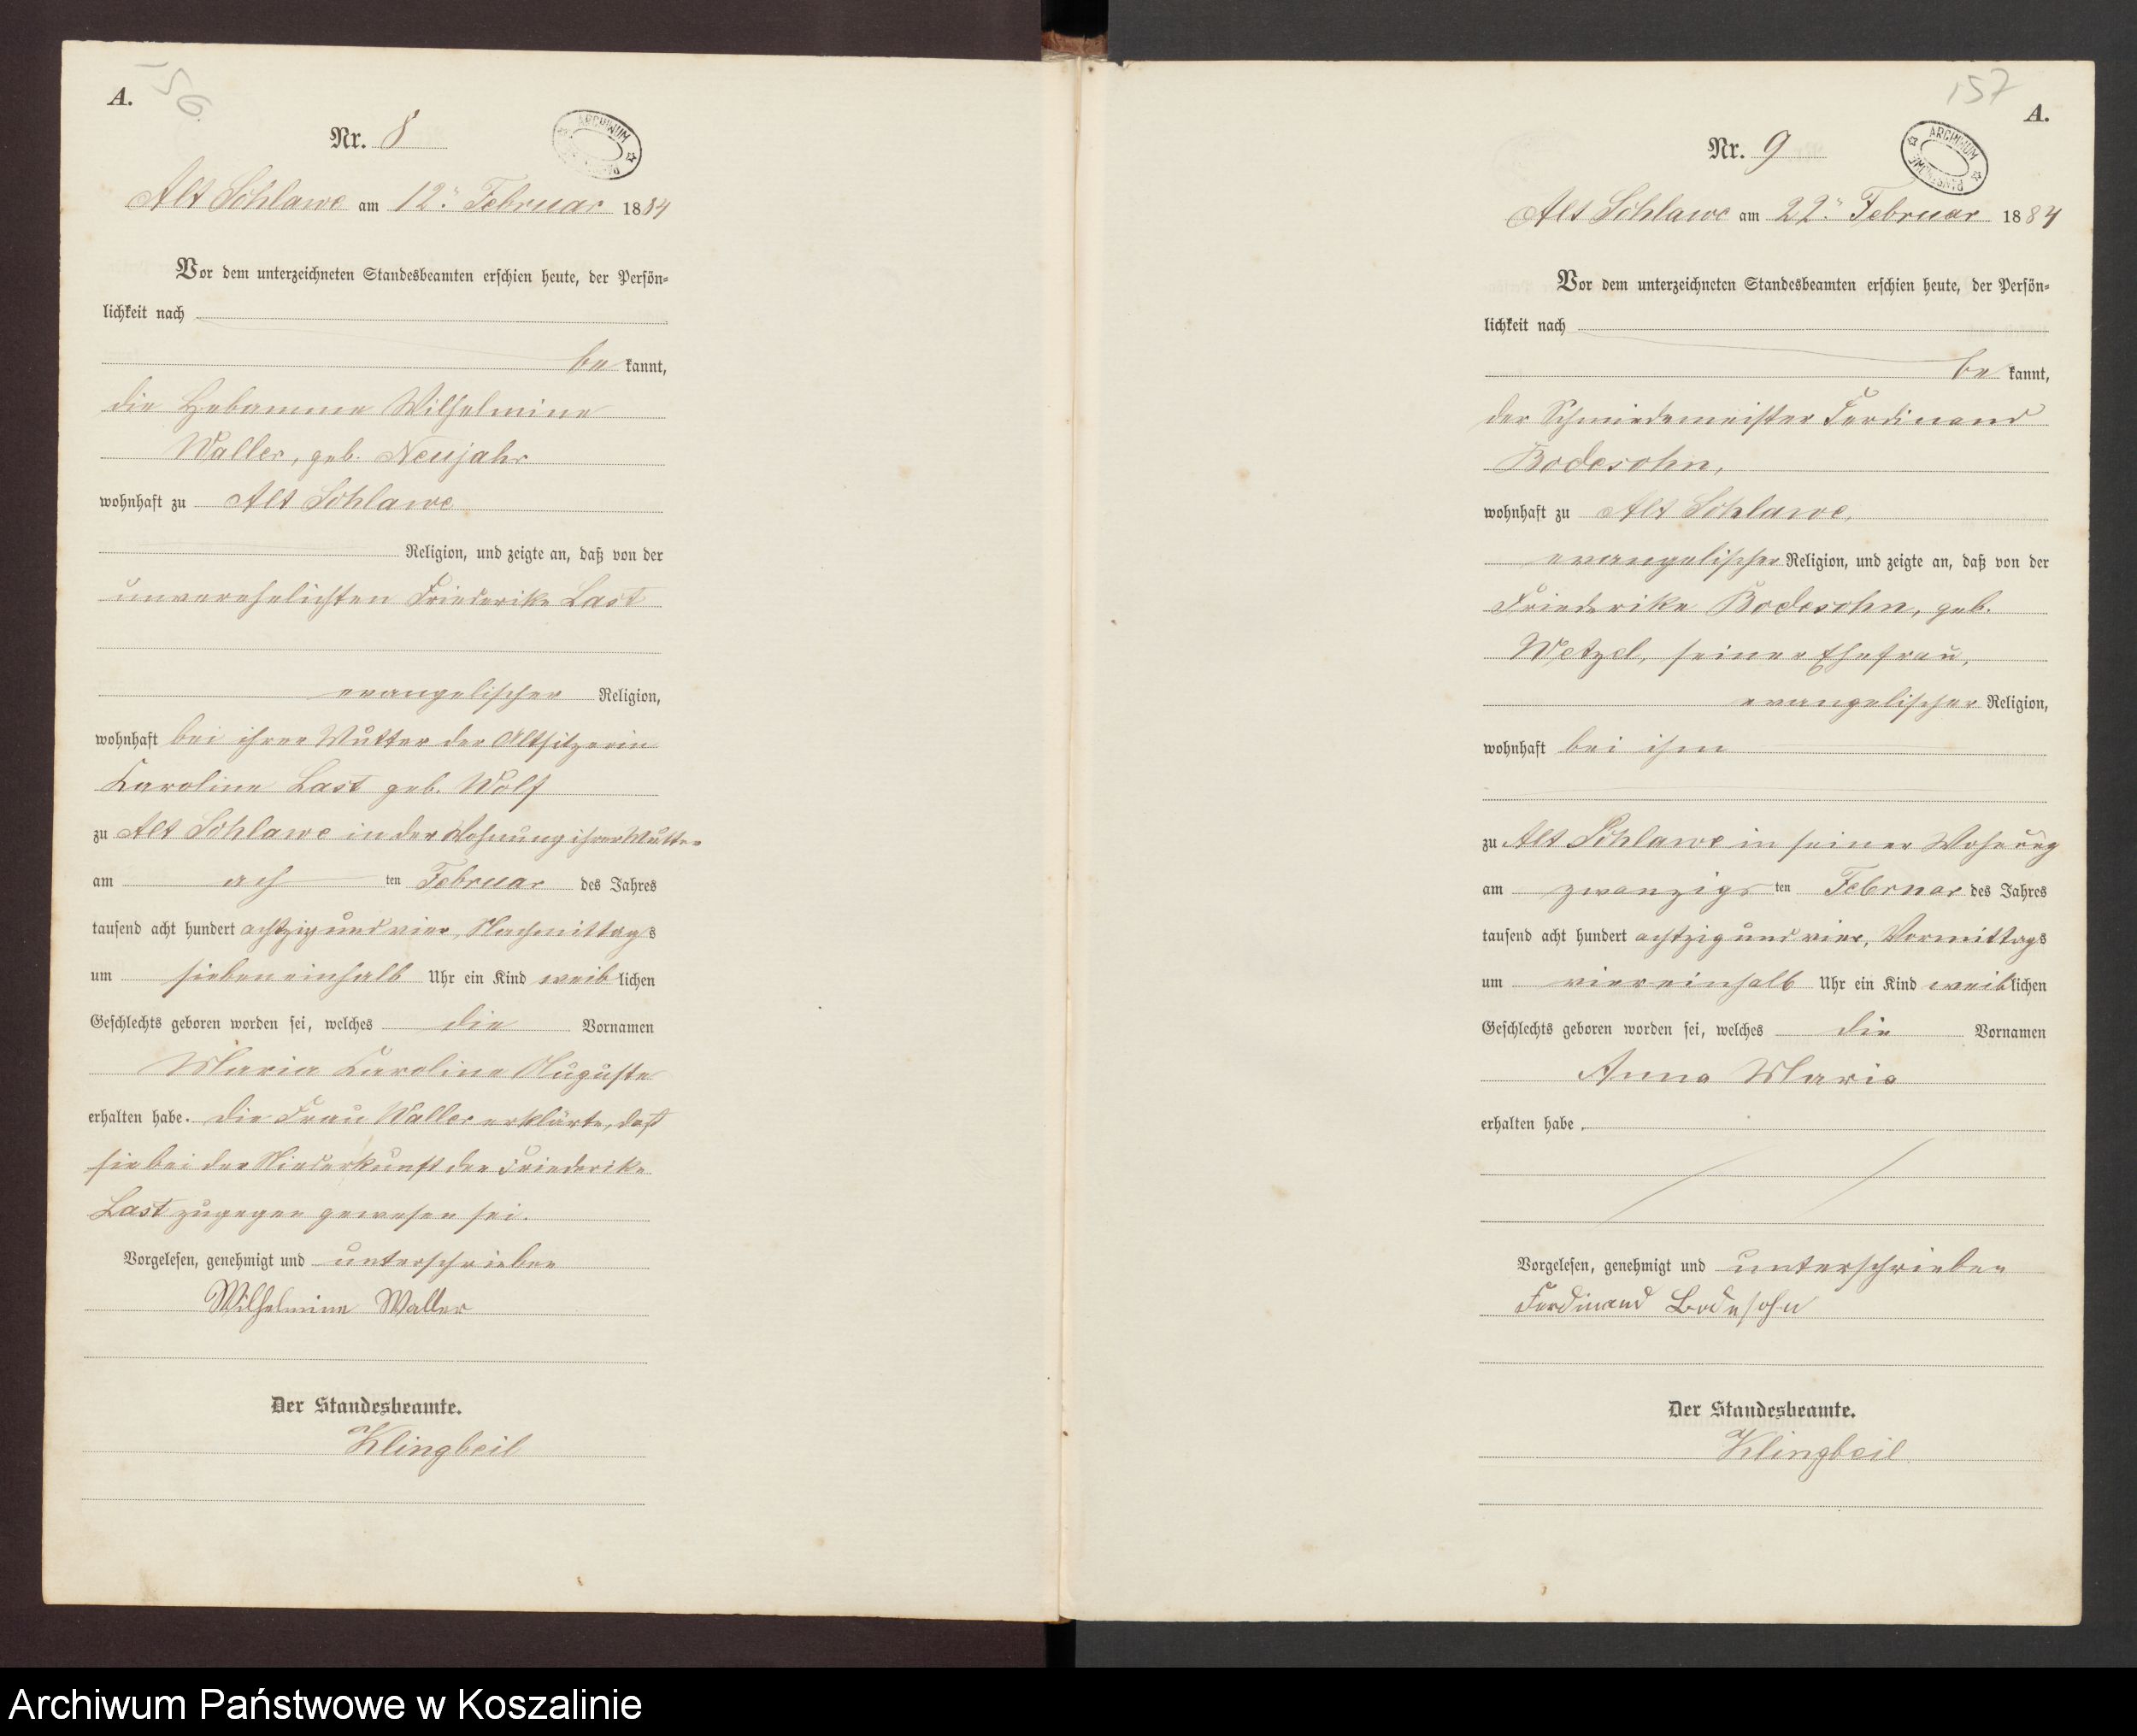 A.
156
Nr. 8
ARCHIWUM
Alt Schlawe am 12. Februar 1884
Vor dem unterzeichneten Standesbeamten erschien heute, der Persön-
lichkeit nach
be kannt,
die Hebamme Wilhelmine
Waller, geb. Neujahr
wohnhaft zu Alt Schlawe
Religion, und zeigte an, daß von der
unverehelichten Friederike Last
evangelischer Religion,
wohnhaft bei ihrer Mutter der Altsitzerin
Karoline Last geb. Wolf
zu Alt Schlawe in der Wohnung ihrer Mutter
am ach ten Februar des Jahres
tausend acht hundert achtzig und vier, Nachmittags
um sieben einhalb Uhr ein Kind weiblichen
Geschlechts geboren worden sei, welches die Vornamen
Maria Karoline Auguste
erhalten habe. Die Frau Waller erklärte, daß
sie bei der Niederkunft der Friederike
Last zugegen gewesen sei.
Vorgelesen, genehmigt und unterschrieben
Wilhelmine Waller
Der Standesbeamte.
Klingbeil
157
A.
Nr. 9
ARCHIWUM
PAŃSTWOWE
Alt Schlawe am 22. Februar 1884
Vor dem unterzeichneten Standesbeamten erschien heute, der Persön-
lichkeit nach
be kannt,
der Schmiedemeister Ferdinand
Bodesohn,
wohnhaft zu Alt Schlawe,
evangelischer Religion, und zeigte an, daß von der
Friederike Bodesohn, geb.
Wetzel, seiner Ehefrau,
evangelischer Religion,
wohnhaft bei ihm
zu Alt Schlawe in seiner Wohnung
am zwanzigs ten Februar des Jahres
tausend acht hundert achtzig und vier, Vormittags
um vier einhalb Uhr ein Kind weiblichen
Geschlechts geboren worden sei, welches die Vornamen
Anna Maria
erhalten habe.
Vorgelesen, genehmigt und unterschrieben
Ferdinand Bodesohn
Der Standesbeamte.
Klingbeil
Archiwum Państwowe w Koszalinie